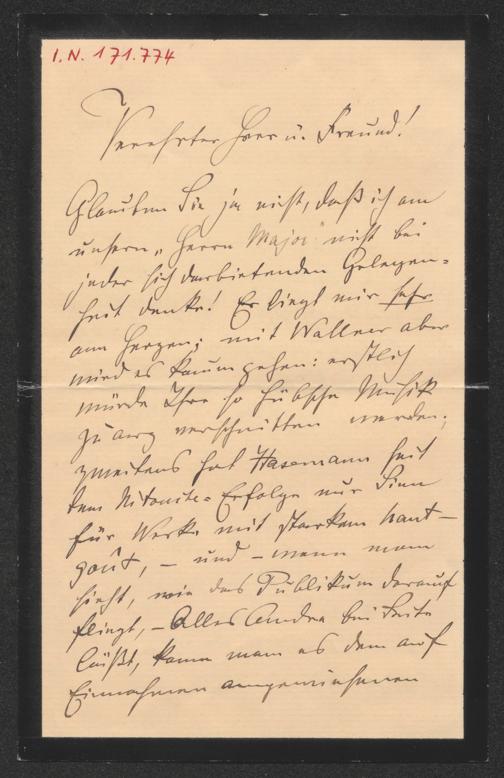 I.N. 171.774
Verehrter Herr u. Freund!
Glauben Sie ja nicht, daß ich an
unsern „Herrn Major“ nicht bei
jeder sich darbietenden Gelegen-
heit denke! Er liegt mir sehr
am Herzen; mit Wallner aber
wird es kaum gehen: erstlich
würde Ihre so hübsche Musik
zu arg verschnitten werden;
zweitens hat Hasemann seit
dem Nitouche-Erfolge nur Sinn
für Werke mit starkem haut-
goût, – und – wenn man
sieht, wie das Publikum darauf
fliegt, – Alles Andre bei Seite
läßt, kann man es dem auf
Einnahmen angewiesenen